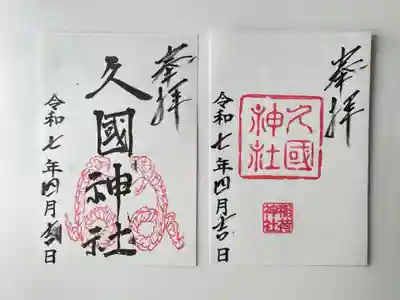 奉拝
久國神社
令和七年四月吉日
奉拝
久國
神社
稲荷
神社
令和七年四月吉日